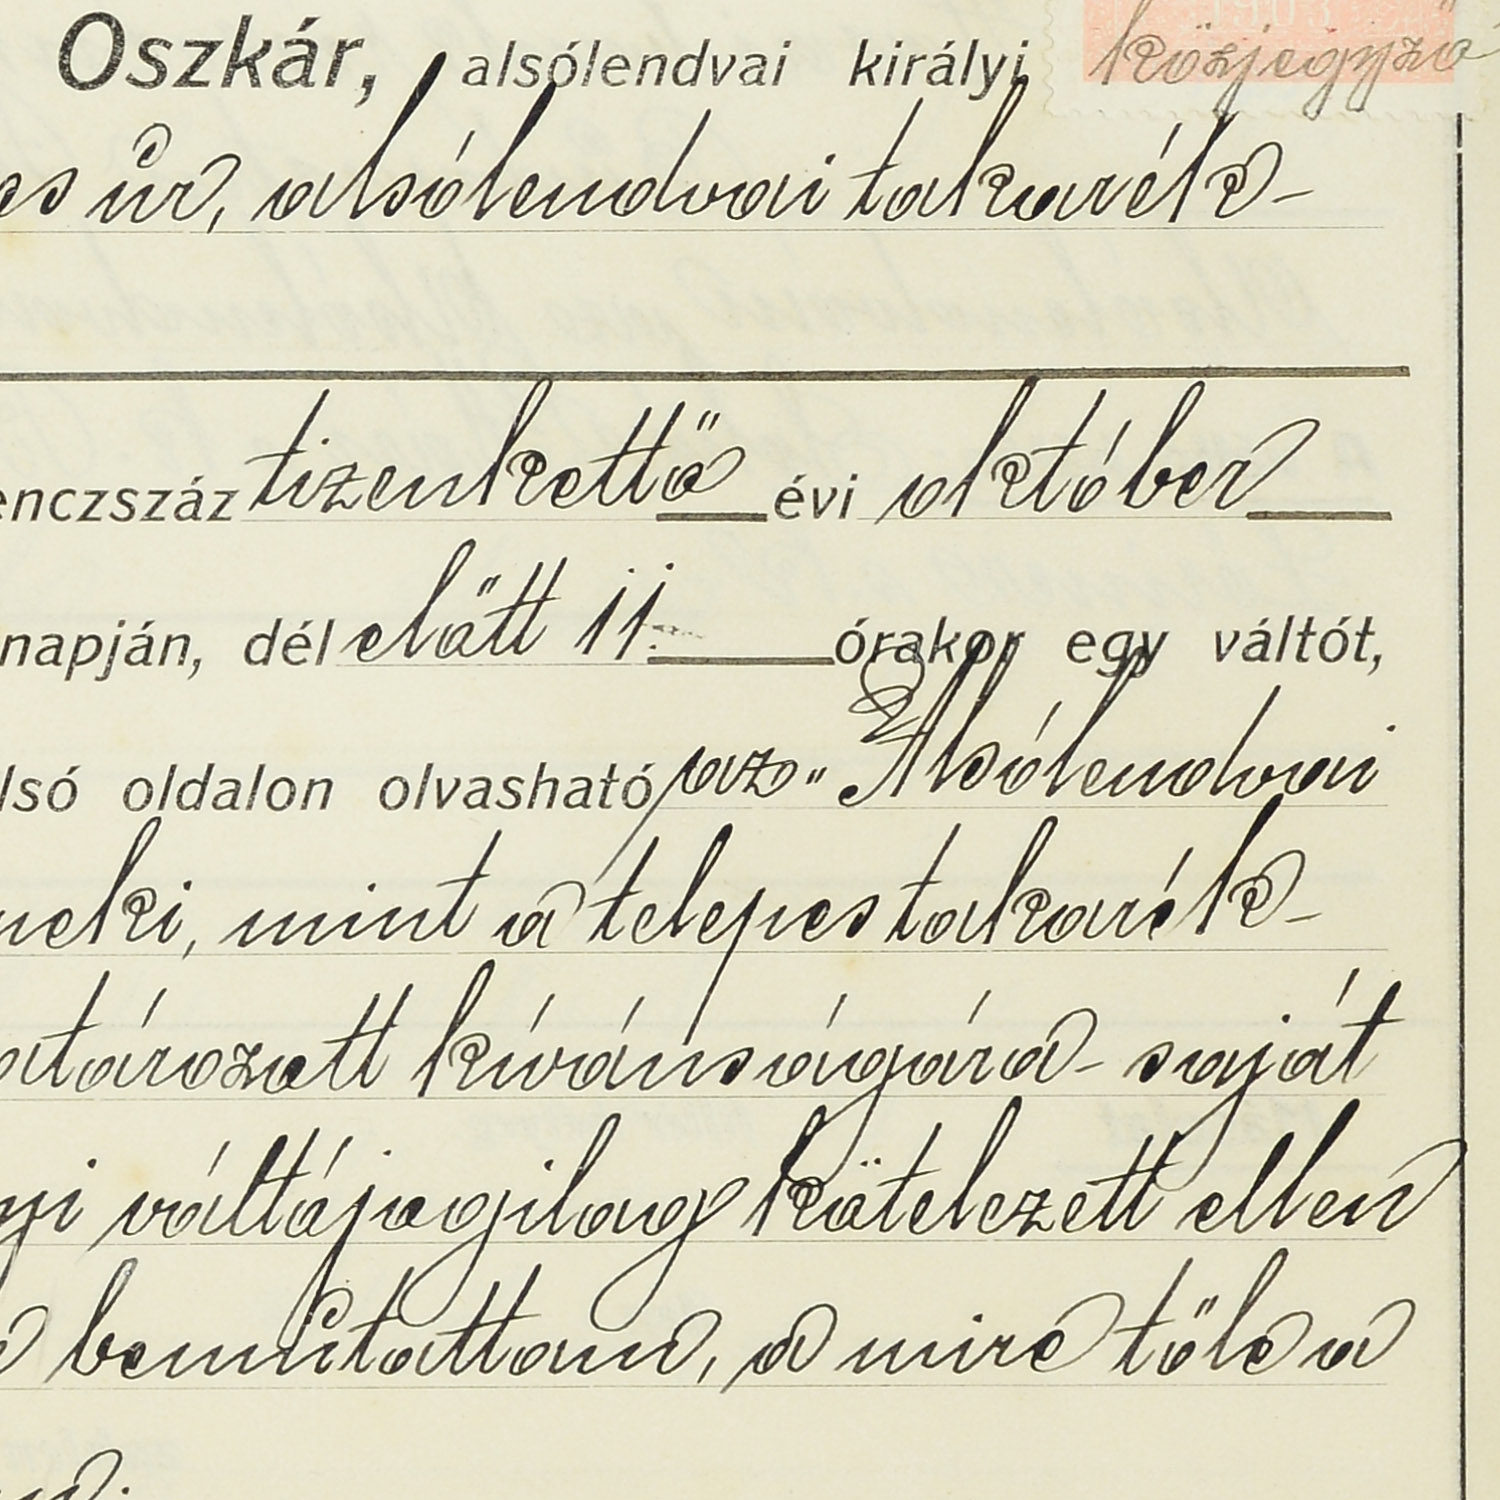 Oszkár, alsólendvai királyi közjegyző
es úr, alsólendvai takarék-
enczszáz tizenkettő évi október
napján, délelőtt 11. órakor egy váltót,
lsó oldalon olvasható az "Alsólendvai
neki, mint a telepes takarék-
atározott kívánságára - saját
yi váltójogilag kötelezett ellen
bemutattam, a mire tőle a